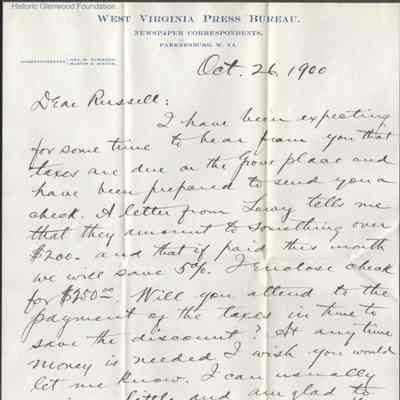 Historic Glenwood Foundation
WEST VIRGINIA PRESS BUREAU.
NEWSPAPER CORRESPONDENTS.
PARKERSBURG, W. VA.
Oct. 26, 1900
Dear Russell:
I have been expecting
for some time to hear from you that
taxes are due on the Jones place and
have been prepared to send you a
check. A letter from Lewy tells me
that they amount to something over
$200. and that if paid this month
we will save 5%. I enclose check
for $250.00. Will you attend to the
payment of the taxes in time to
save the discount? At any time
money is needed I wish you would
let me know. I can usually
little and am glad to